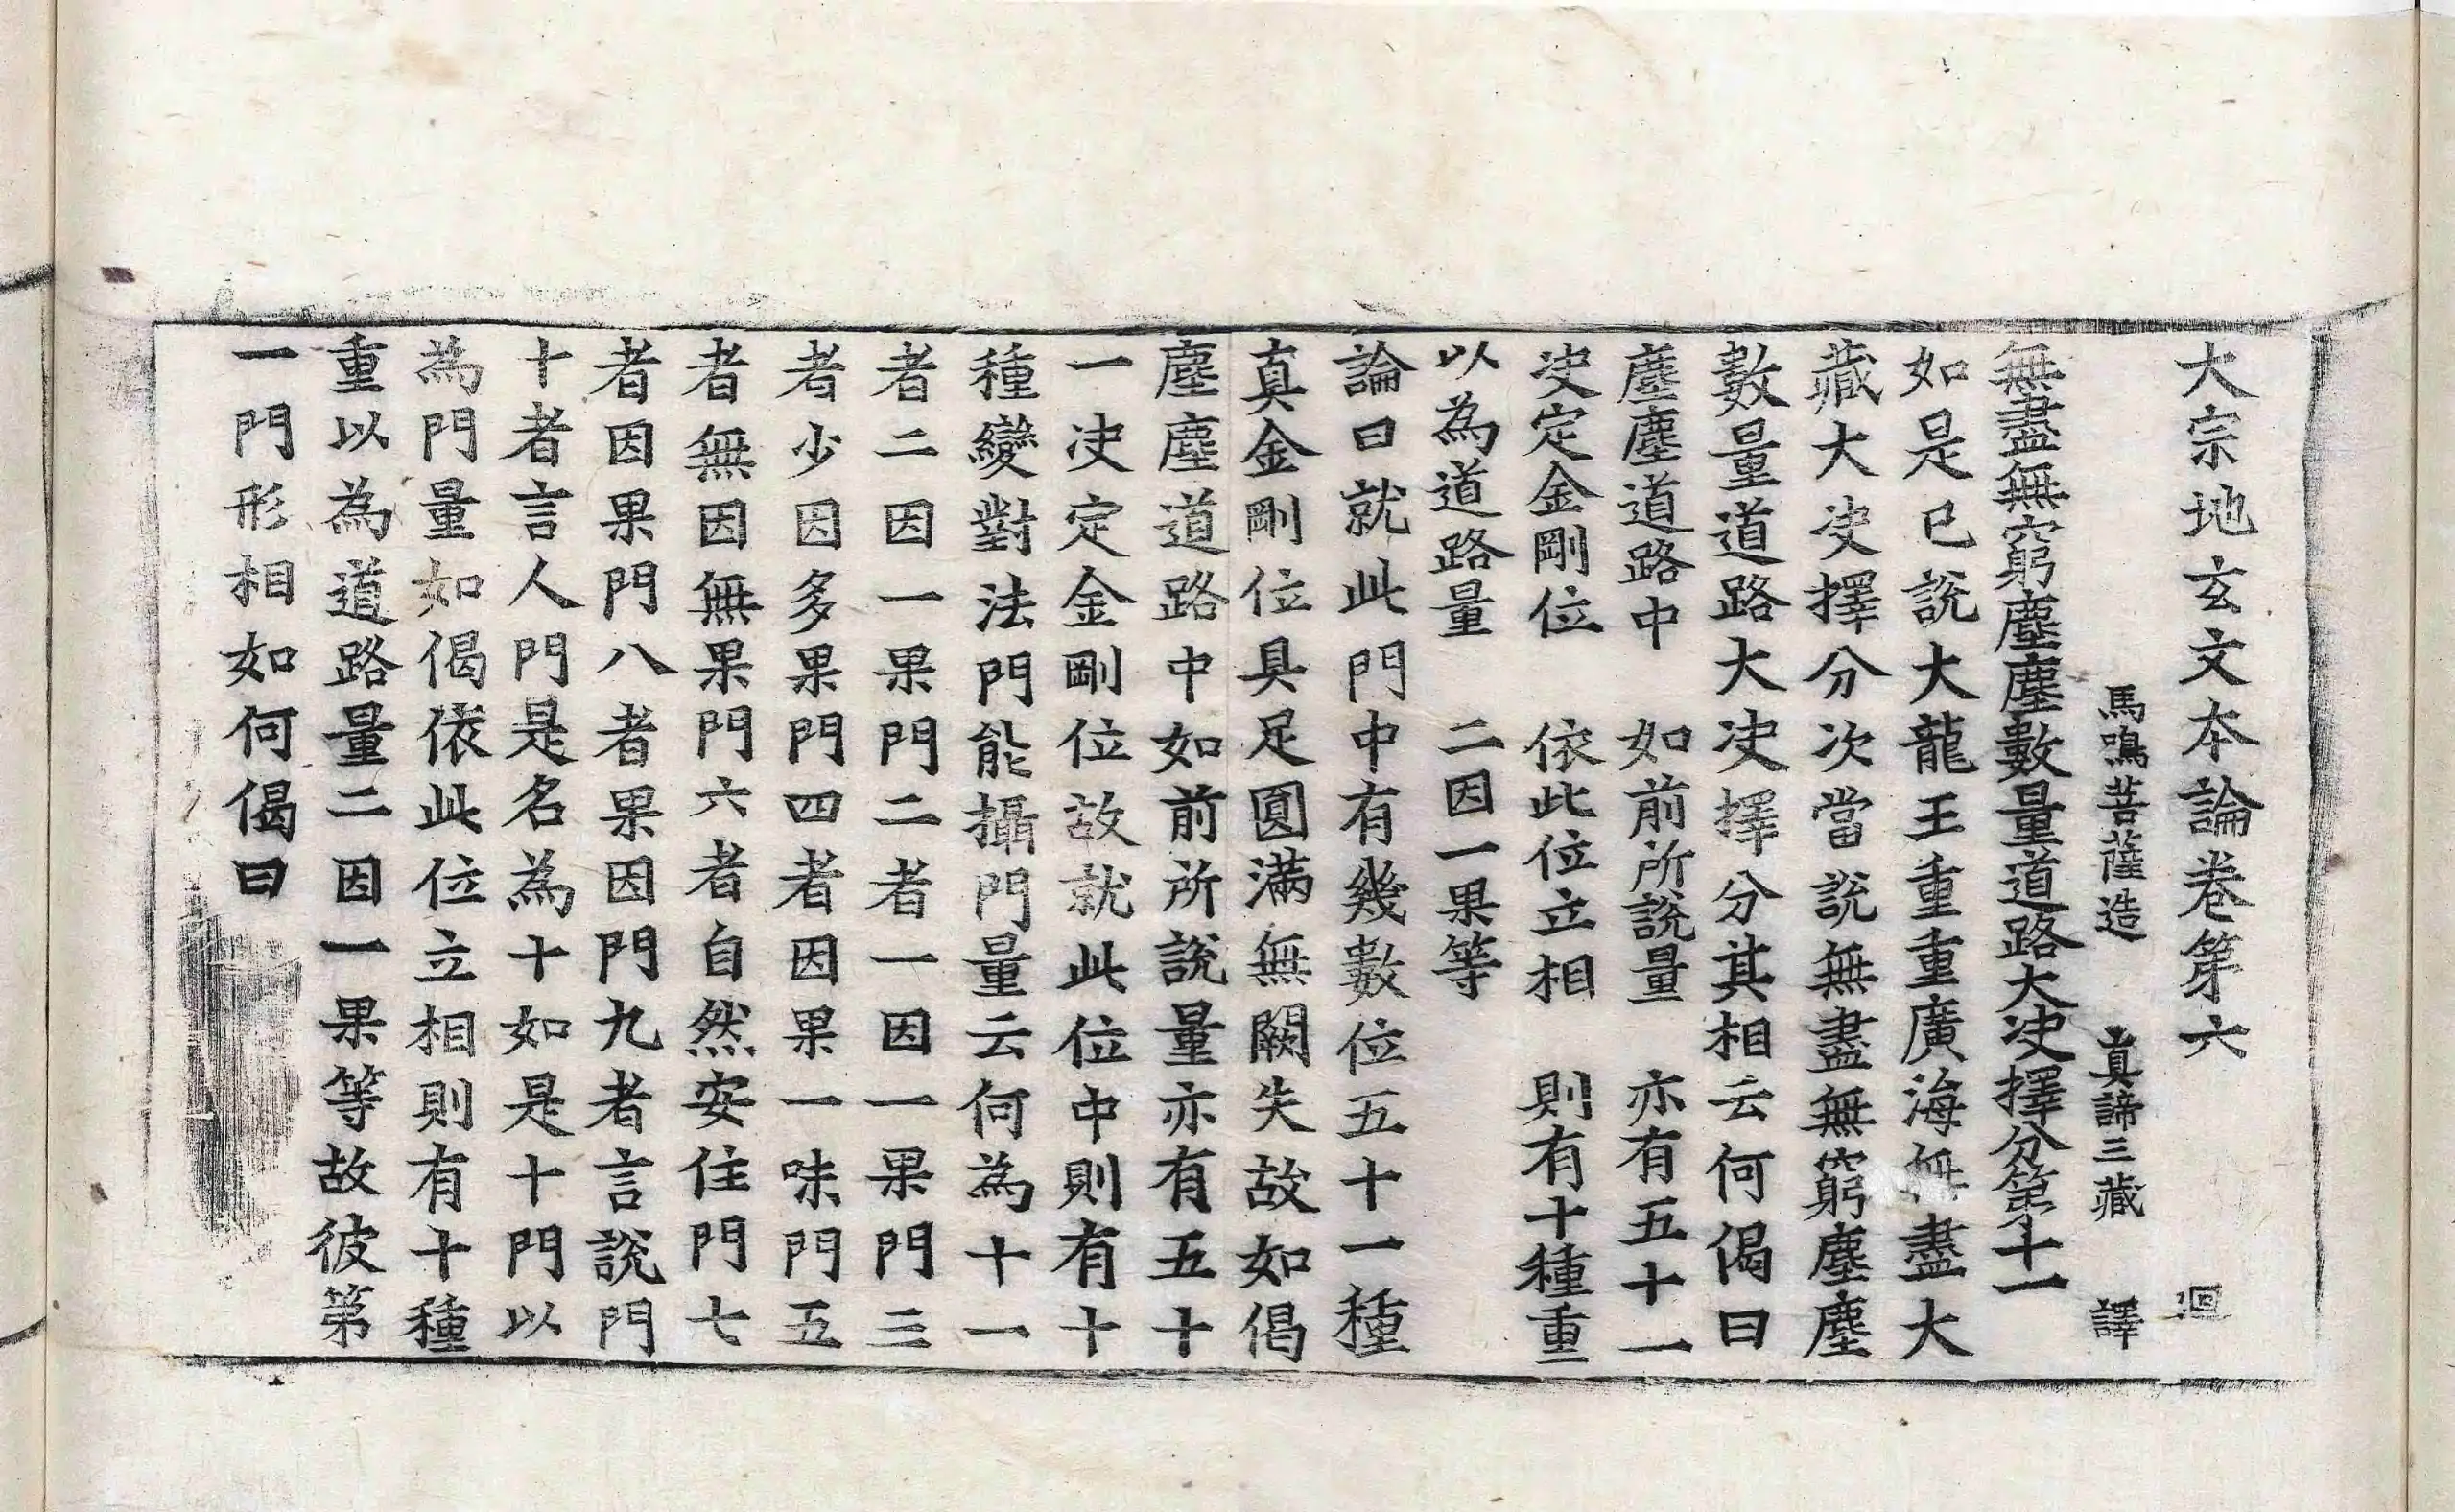 大宗地玄文本論卷第六 迴
馬鳴菩薩造 真諦三藏 譯
無盡無窮塵塵數量道路大决擇分第十一
如是已說大龍王重重廣海無盡大
藏大决擇分次當說無盡無窮塵塵
數量道路大决擇分其相云何偈曰
塵塵道路中 如前所說量 亦有五十一
决定金剛位 依此位立相 則有十種重
以為道路量 二因一果等
論曰就此門中有幾數位五十一種
真金剛位具足圓滿無闕失故如偈
塵塵道路中如前所說量亦有五十
一决定金剛位故就此位中則有十
種變對法門能攝門量云何為十一
者二因一果門二者一因一果門三
者少因多果門四者因果一味門五
者無因無果門六者自然安住門七
者因果門八者果因門九者言說門
十者言人門是名為十如是十門以
為門量如偈依此位立相則有十種
重以為道路量二因一果等故彼第
一門形相如何偈曰